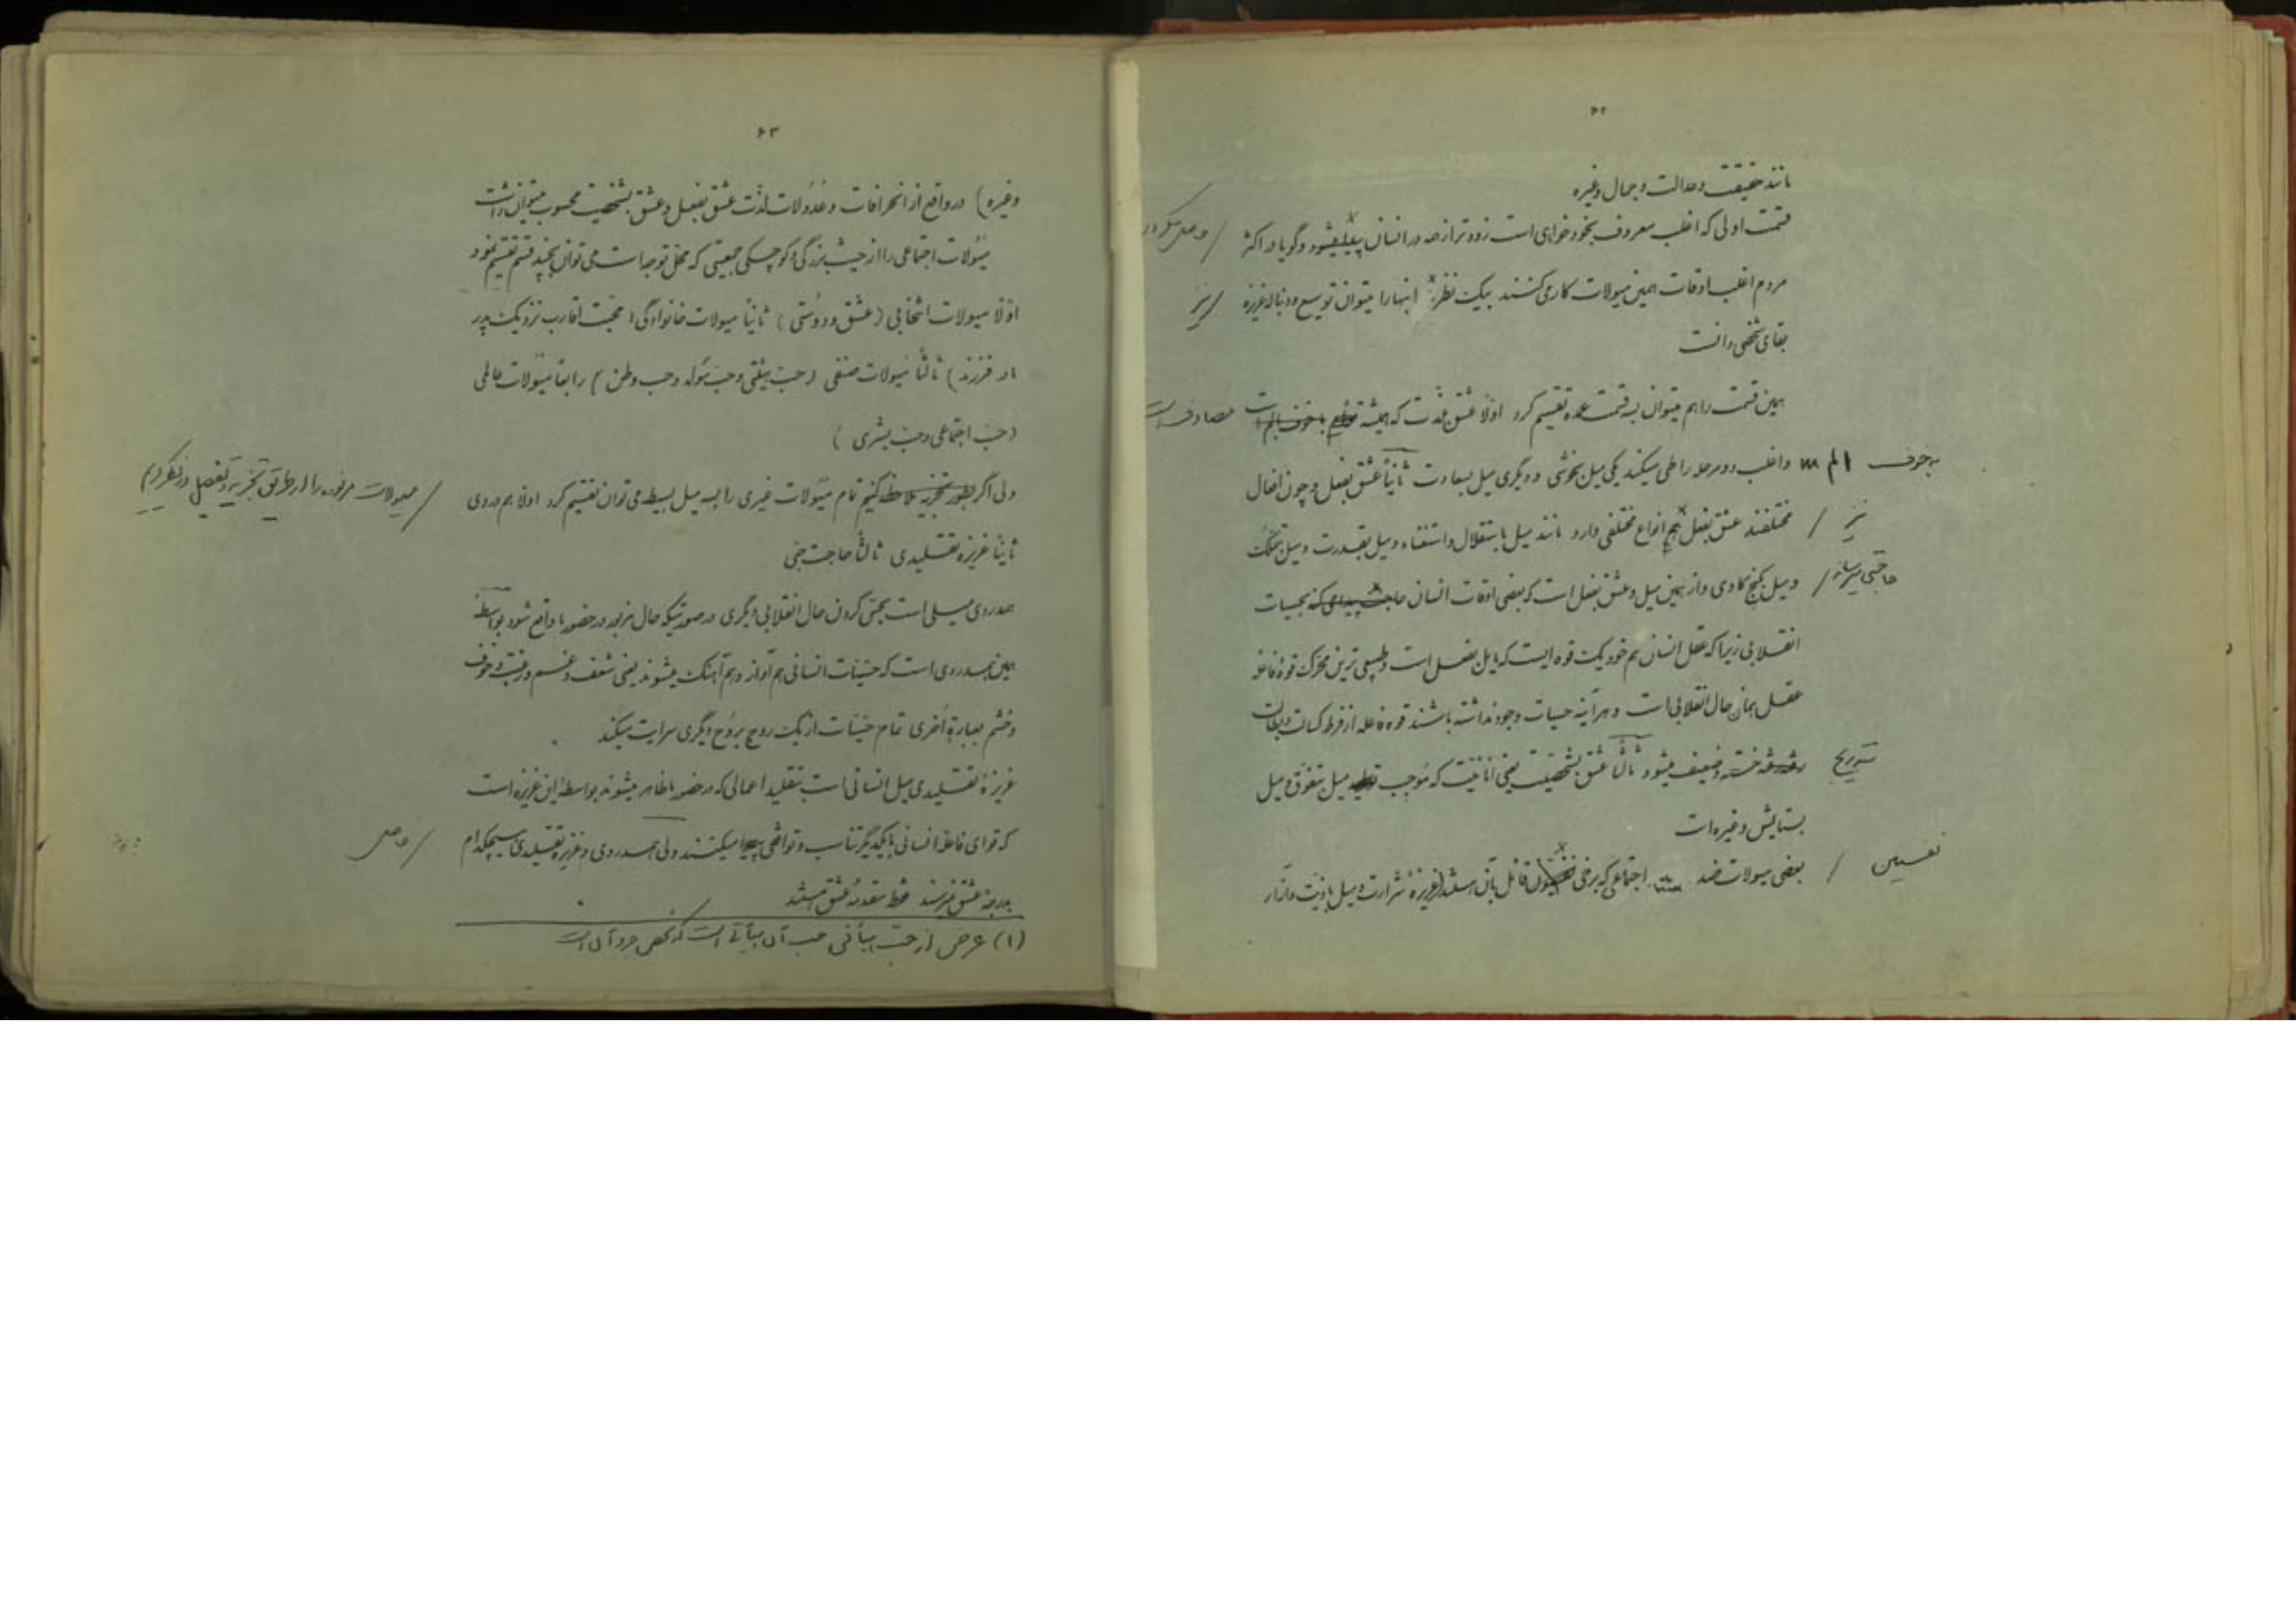 ۶۲
مانند حقیقت و عدالت و جمال و غیره
قسمت اولی که اغلب معروف بخودخواهی است زودتر از همه در انسان پیدا میشود و گویا در اکثر
مردم اغلب اوقات همین میولات کار می کنند بیک نظر اینها را میتوان توسیع و دنباله غریزه
نیز
بقای شخصی دانست
همین قسمت را هم میتوان بسه قسمت عمده تقسیم کرد اولا عشق لذت که همیشه با خوف الم است
مصادف است
به خوف الم و اغلب دو مرحله را طی میکند یکی میل بخوشی و دیگری میل بسعادت ثانیاً عشق بفعل و چون افعال
نیز / مختلفند عشق بفعل هم انواع مختلفی دارد مانند میل باستقلال و استغناء و میل بقدرت و میل بتملک
و میل بکنج کاوی و از همین میل و عشق بفعل است که بعضی اوقات انسان حاجت پیدا می کند بحسیات
انقلابی زیرا که عقل انسان هم خود یک قوه ایست که مایل بفعل است و طبیعی ترین محرک قوه فاعله
عقل همان حال انقلابی است و هر آینه حسیات وجود نداشته باشند قوه فاعله از فرط کسالت و بطالت
بتدریج
رفته رفته خسته و ضعیف میشود ثالثاً عشق بشخصیت یعنی انانیت که موجب میل بتفوق و میل
بستایش و غیره است
بعضی میولات ضد اجتماعی که برخی قائل بآن هستند (غریزه شرارت و میل باذیت و آزار
۶۳
وغیره) در واقع از انحرافات و عدولات لذت عشق بفعل و عشق بشخصیت محسوب میتوان داشت
میولات اجتماعی را از حیث بزرگی و کوچکی جمعیتی که محل توجه است می توان بچند قسم تقسیم نمود
اولا میولات انتخابی (عشق و دوستی) ثانیاً میولات خانوادگی (محبت اقارب نزدیک پدر
مادر فرزند) ثالثاً میولات صنفی (حب هیئتی و حب مولد و حب وطن) رابعاً میولات عاملی
(حب اجتماعی و حب بشری)
ولی اگر بطور تجزیه ملاحظه کنیم تمام میولات غیری را بسه میل بسیط می توان تقسیم کرد اولا همدردی
/ میولات مزبوره را از طریق تجزیه و تفصیل در نظر گیریم
ثانیاً غریزه تقلیدی ثالثاً حاجت حبی
همدردی میلی است بحس کردن حال انقلابی دیگری در صورتیکه حال مزبور در حضور ما واقع شود بواسطه
همین همدردی است که حسیات انسانی هم آواز و هم آهنگ میشوند یعنی شعف و غم و رغبت و خوف
و خشم بعبارة اخری تمام حسیات از یک روح بروح دیگری سرایت میکند
غریزه تقلیدی میل انسانی است بتقلید اعمالی که در حضور ما ظاهر میشوند بواسطه این غریزه است
که قوای فاعله انسانی با یکدیگر تناسب و توافقی پیدا میکنند ولی همدردی و غریزه تقلیدی هیچکدام
/ حاصل
بدرجه عشق نمیرسند فقط مقدمه عشق هستند
(۱) غرض از حب هیأتی حب آن هیأتی است که شخص جزو آن است